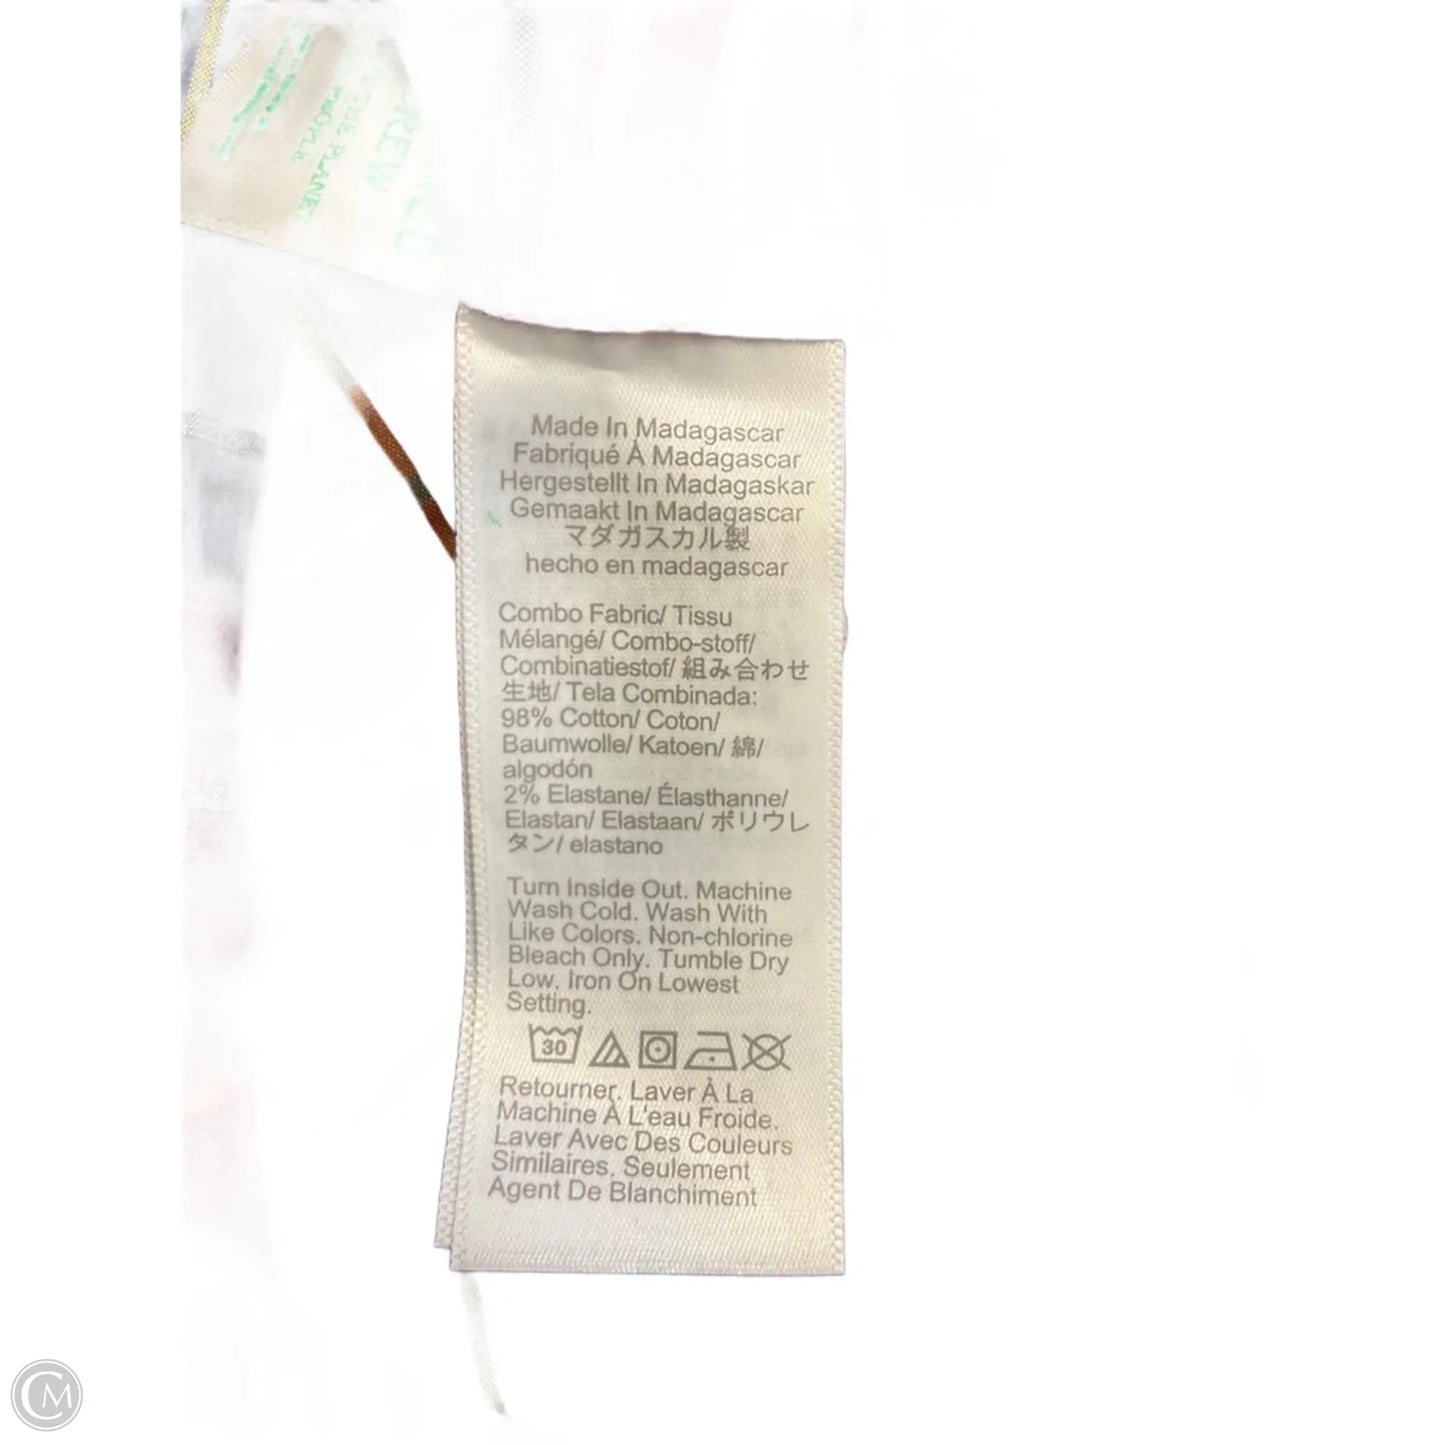 CREW
THE PEOPLE
THE PLANET
Made In Madagascar
Fabriqué À Madagascar
Hergestellt In Madagaskar
Gemaakt In Madagascar
マダガスカル製
hecho en madagascar
Combo Fabric/ Tissu
Mélangé/ Combo-stoff/
Combinatiestof/ 組み合わせ
生地/ Tela Combinada:
98% Cotton/ Coton/
Baumwolle/ Katoen/ 綿/
algodón
2% Elastane/ Élasthanne/
Elastan/ Elastaan/ ポリウレ
タン/ elastano
Turn Inside Out. Machine
Wash Cold. Wash With
Like Colors. Non-chlorine
Bleach Only. Tumble Dry
Low. Iron On Lowest
Setting.
30
Retourner. Laver À La
Machine À L'eau Froide.
Laver Avec Des Couleurs
Similaires. Seulement
Agent De Blanchiment
CM